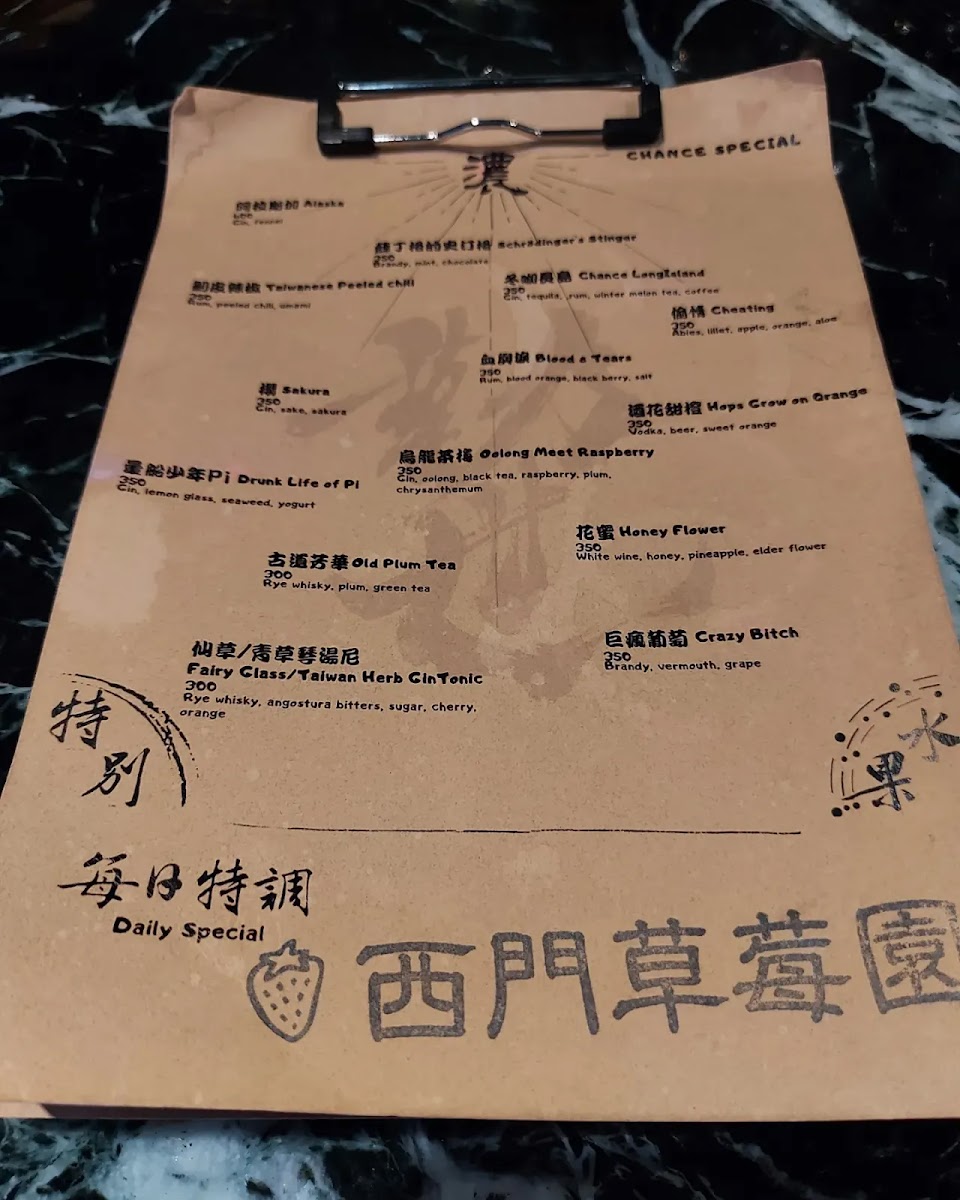 CHANCE SPECIAL
濃
阿拉斯加 Alaska
Gin,
薛丁格的史汀格 Schrödinger's Stinger
350
Brandy, mint, chocolate
剝皮辣椒 Taiwanese Peeled chili
350
Rum, peeled chili, umami
冬咖長島 Chance LongIsland
350
Gin, tequila, rum, winter melon tea, coffee
偷情 Cheating
350
Ables, lillet, apple, orange, aloe
血與淚 Blood & Tears
350
Rum, blood orange, black berry, salt
櫻 Sakura
350
Gin, sake, sakura
酒花甜橙 Hops Grow on Orange
350
Vodka, beer, sweet orange
烏龍茶梅 Oolong Meet Raspberry
350
Gin, oolong, black tea, raspberry, plum,
chrysanthemum
暈船少年Pi Drunk Life of Pi
350
Gin, lemon glass, seaweed, yogurt
花蜜 Honey Flower
350
White wine, honey, pineapple, elder flower
古酒芳華 Old Plum Tea
300
Rye whisky, plum, green tea
巨瘋葡萄 Crazy Bitch
350
Brandy, vermouth, grape
仙草/青草琴湯尼
Fairy Glass/Taiwan Herb GinTonic
300
Rye whisky, angostura bitters, sugar, cherry,
orange
特別
水果
每日特調
Daily Special
西門草莓園